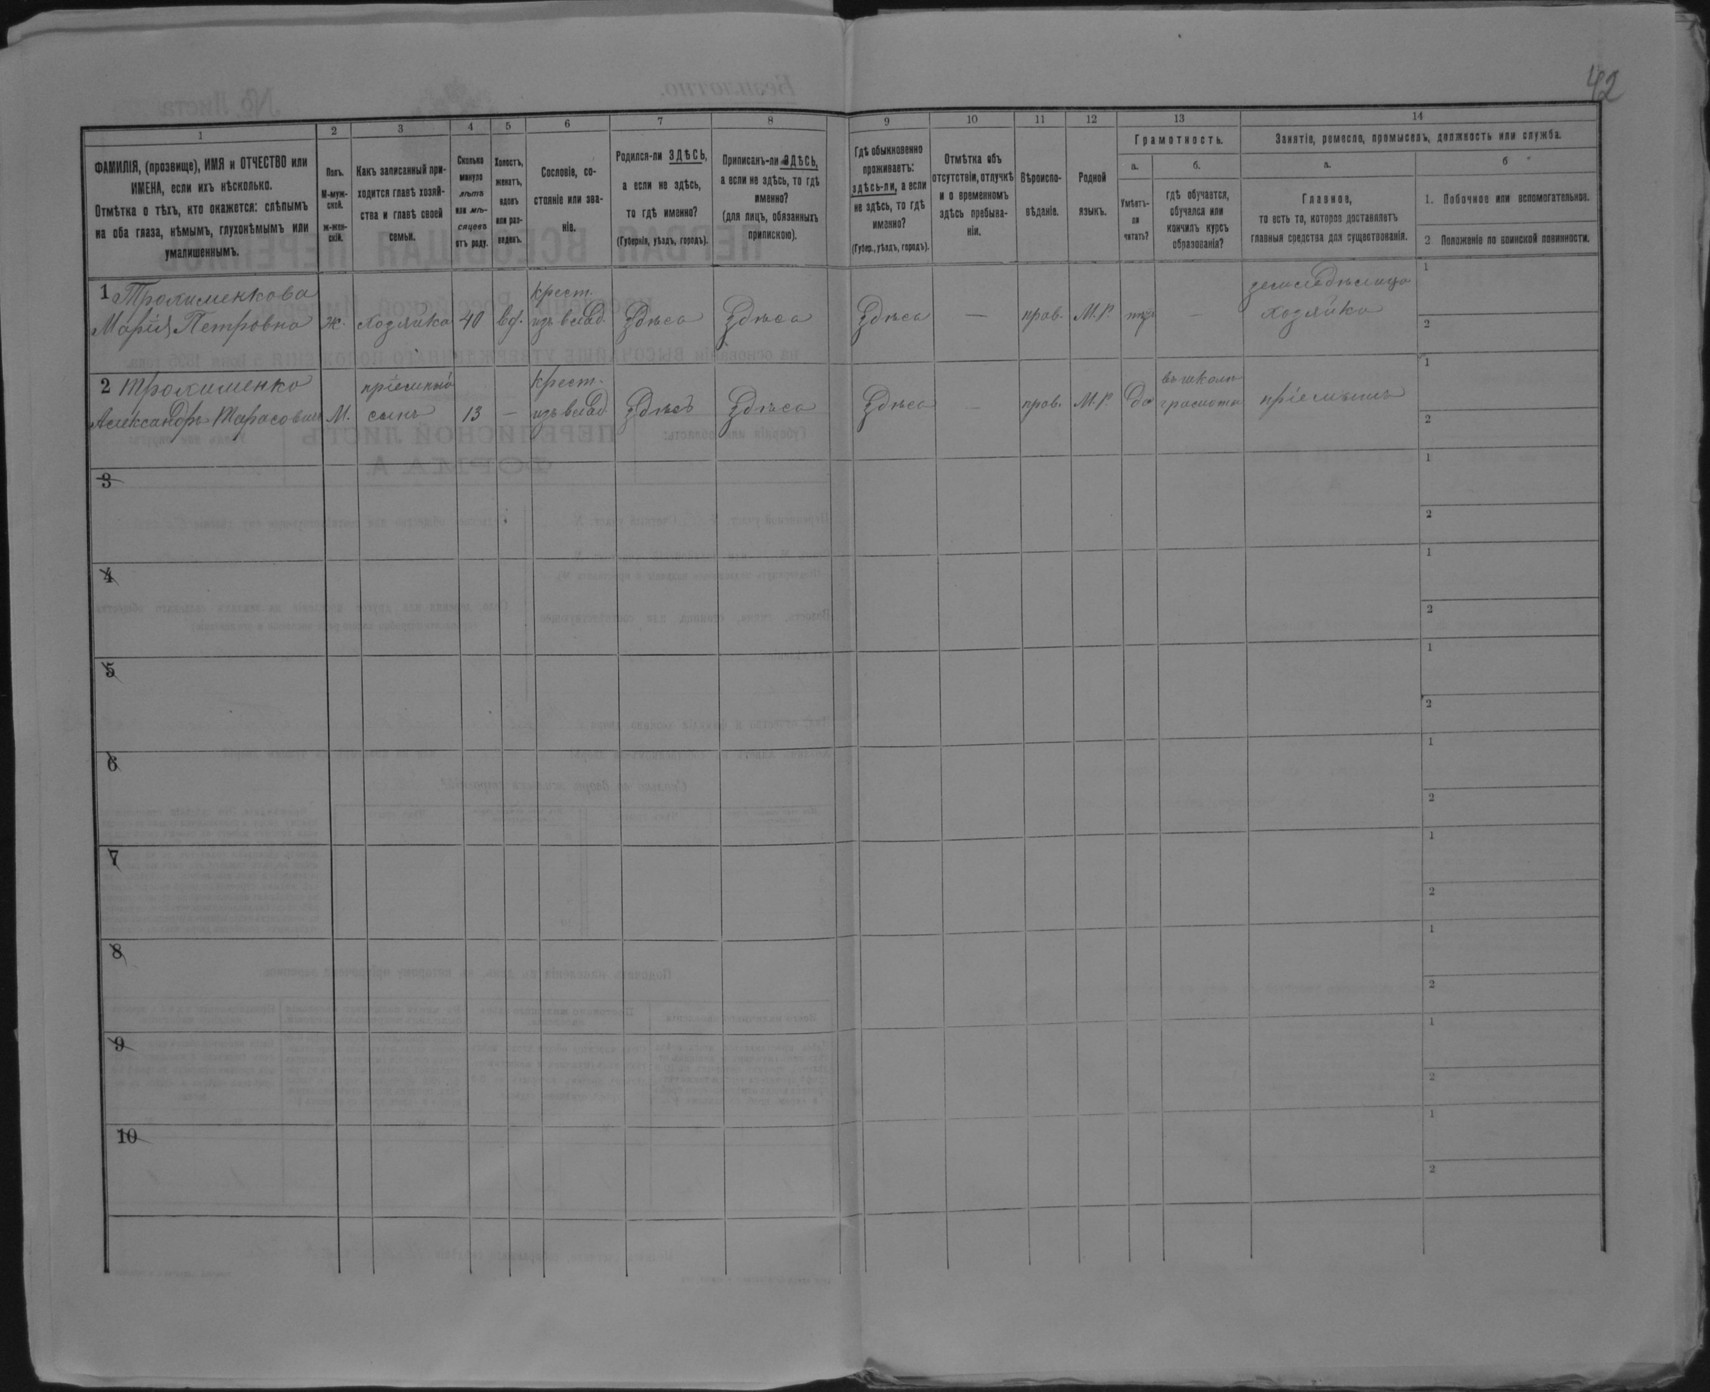 42
1
2
3
4
5
6
7
8
9
10
11
12
13
14
ФАМИЛІЯ, (прозвище), ИМЯ и ОТЧЕСТВО или
ИМЕНА, если ихъ нѣсколько.
Отмѣтка о тѣхъ, кто окажется: слѣпымъ
на оба глаза, нѣмымъ, глухонѣмымъ или
умалишеннымъ.
Полъ.
М-муж-
ской.
ж-жен-
скій.
Какъ записанный при-
ходится главѣ хозяй-
ства и главѣ своей
семьи.
Сколько
минуло
лѣтъ
или мѣ-
сяцевъ
отъ роду.
Холостъ,
женатъ,
вдовъ
или раз-
веденъ.
Сословіе, со-
стояніе или зва-
ніе.
Родился-ли ЗДѢСЬ,
а если не здѣсь,
то гдѣ именно?
(Губернія, уѣздъ, городъ).
Приписанъ-ли ЗДѢСЬ,
а если не здѣсь, то гдѣ
именно?
(для лицъ, обязанныхъ
припискою).
Гдѣ обыкновенно
проживаетъ:
здѣсь-ли, а если
не здѣсь, то гдѣ
именно?
(Губер., уѣздъ, городъ).
Отмѣтка объ
отсутствіи, отлучкѣ
и о временномъ
здѣсь пребыва-
ніи.
Вѣроиспо-
вѣданіе.
Родной
языкъ.
Грамотность.
а.
б.
Умѣетъ-
ли
читать?
гдѣ обучается,
обучался или
кончилъ курсъ
образованія?
Занятіе, ремесло, промыселъ, должность или служба.
а.
б
Главное,
то есть то, которое доставляетъ
главныя средства для существованія.
1. Побочное или вспомогательное.
2 Положеніе по воинской повинности.
1 Трохименкова
Марія Петровна
ж.
хозяйка
40
вд.
крест.
изъ влад
Здѣсь
Здѣсь
Здѣсь
—
прав.
М.Р
—
хозяйка
1
2
2 Трохименко
Александръ Тарасовъ
М.
пріемный
сынъ
13
—
крест.
изъ влад
Здѣсь
Здѣсь
Здѣсь
—
прав.
М.Р
да
въ школѣ
грамоты
пріемышъ
1
2
3
1
2
4
1
2
5
1
2
6
1
2
7
1
2
8
1
2
9
1
2
10
1
2